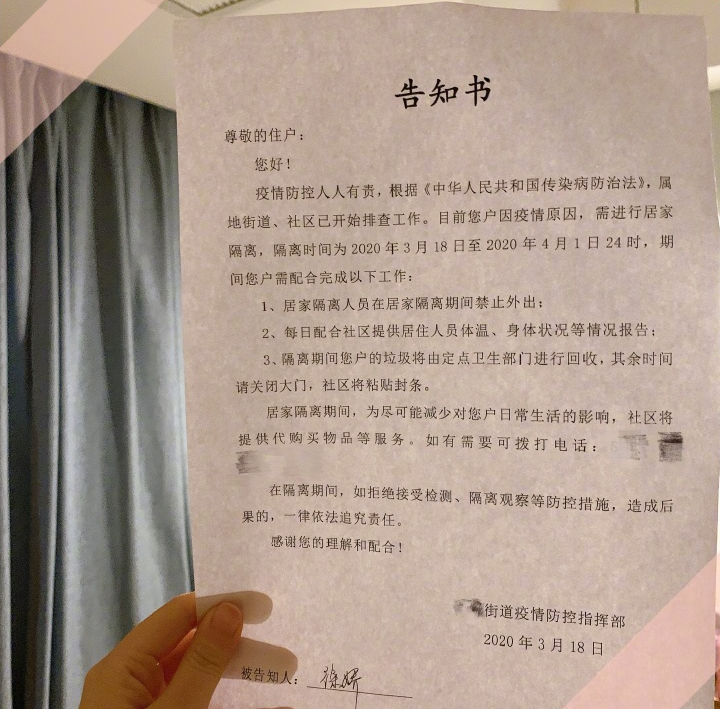 告知书
尊敬的住户：
您好！
疫情防控人人有责，根据《中华人民共和国传染病防治法》，属
地街道、社区已开始排查工作。目前您户因疫情原因，需进行居家
隔离，隔离时间为 2020 年 3 月 18 日至 2020 年 4 月 1 日 24 时，期
间您户需配合完成以下工作：
1、居家隔离人员在居家隔离期间禁止外出；
2、每日配合社区提供居住人员体温、身体状况等情况报告；
3、隔离期间您户的垃圾将由定点卫生部门进行回收，其余时间
请关闭大门，社区将粘贴封条。
居家隔离期间，为尽可能减少对您户日常生活的影响，社区将
提供代购买物品等服务。如有需要可拨打电话：
在隔离期间，如拒绝接受检测、隔离观察等防控措施，造成后
果的，一律依法追究责任。
感谢您的理解和配合！
街道疫情防控指挥部
2020 年 3 月 18 日
被告知人：